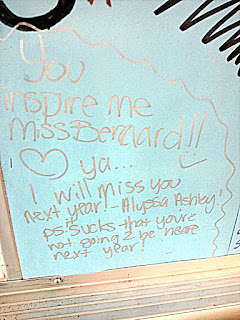 You
inspire me
Miss Bernard!!
ya...
I will Miss you
next year! - Alyssa Ashley!
ps. sucks that youre
not going 2 be heare
next year!